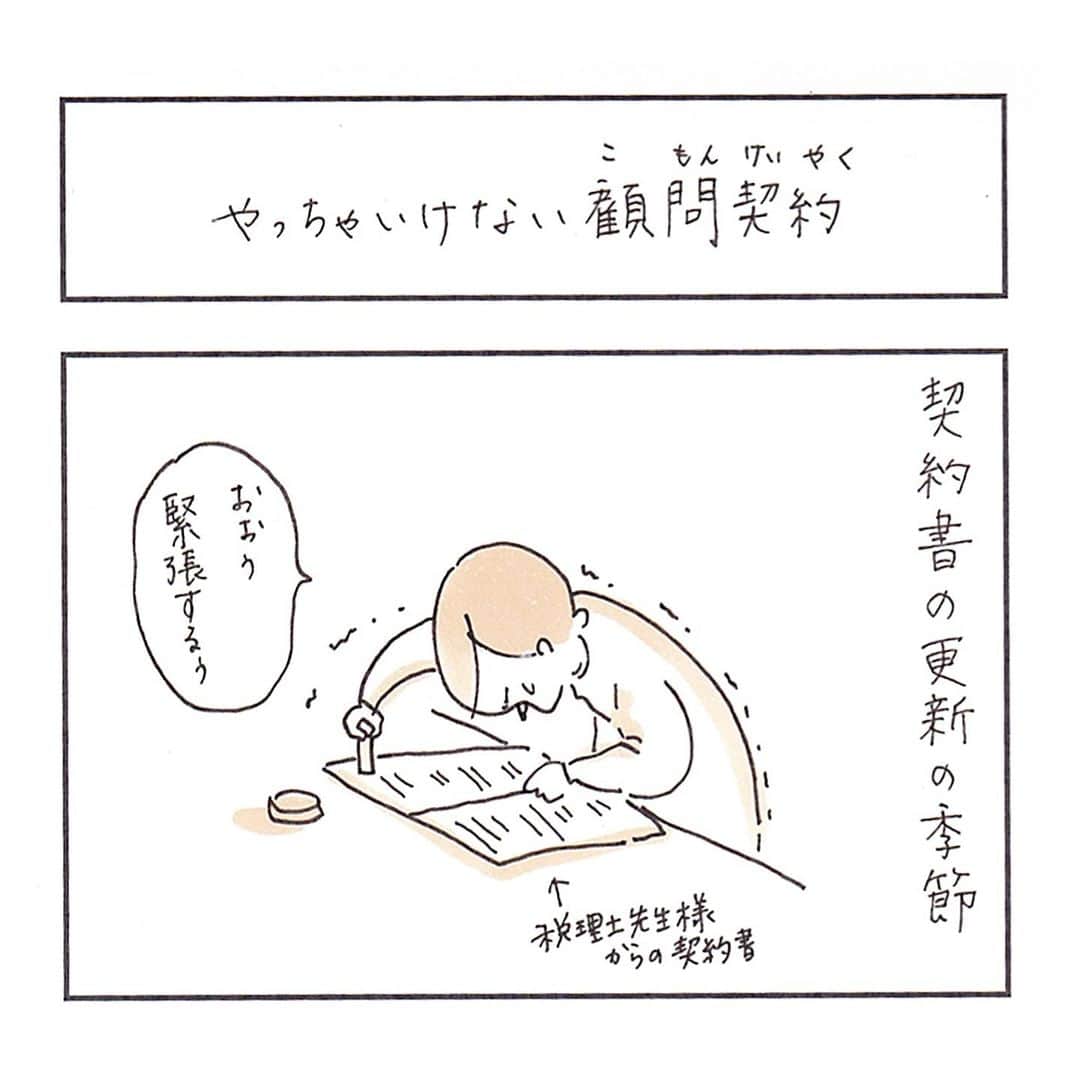 こ もん けい やく
やっちゃいけない顧問契約
契約書の更新の季節
おおぅ
緊張するぅ
↑
税理士先生様
からの契約書